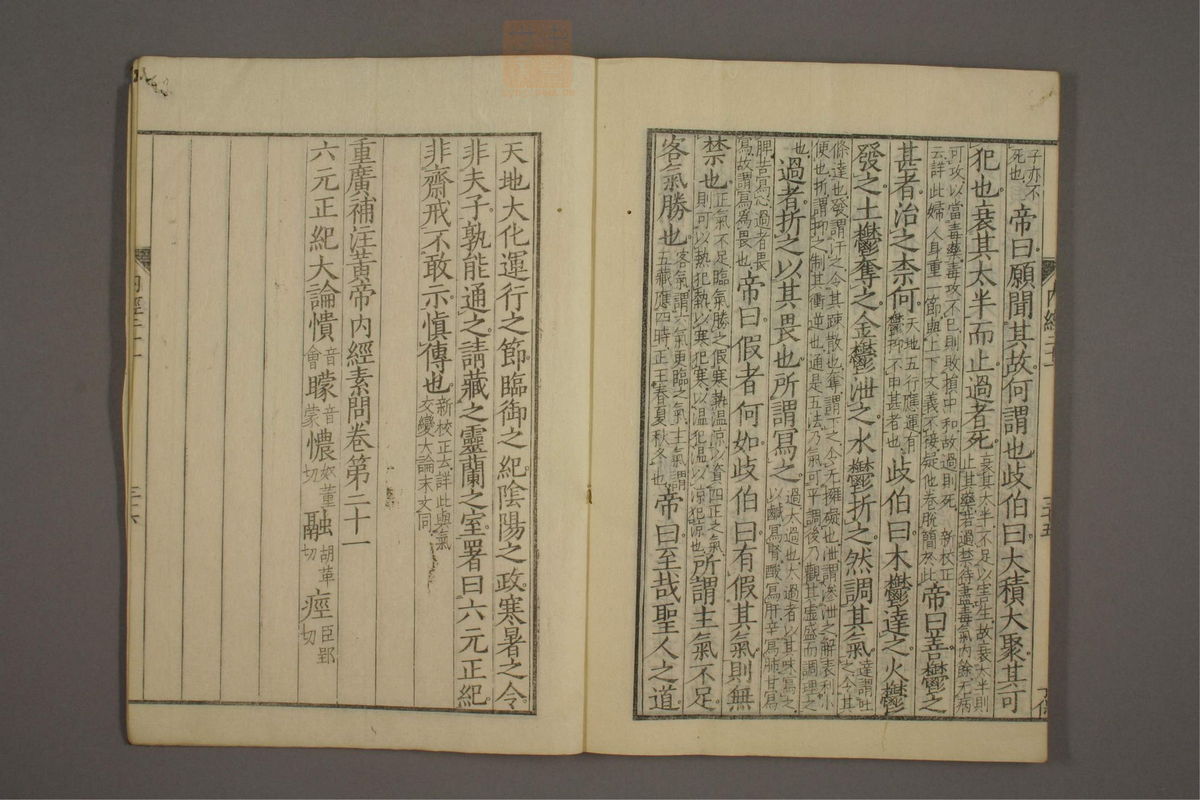 子亦不死也帝曰願聞其故何謂也歧伯曰大積大聚其可
犯也衰其太半而止過者死衰其太半不足以害生故衰太半則止其藥若過禁待盡毒氣內餘无病
可攻以當毒藥毒攻不已則敗損中和故過則死新校正云詳此婦人身重一節與上下文義不接疑他卷脫簡於此帝曰善鬱之
甚者治之柰何天地五行應運有鬱抑不申甚者也歧伯曰木鬱達之火鬱
發之土鬱奪之金鬱泄之水鬱折之然調其氣達謂吐之令其
條達也發謂汗之令其踈散也奪謂下之令无擁礙也泄謂滲泄之解表利小便也折謂抑之制其衝逆也通是五法乃氣可平調後乃觀其虛盛而調理之
也過者折之以其畏也所謂寫之過太過也太過者以其味寫之以鹹寫腎酸寫肝辛寫肺甘寫
脾苦寫心過者畏寫故謂寫爲畏也帝曰假者何如歧伯曰有假其氣則無
禁也正氣不足臨氣勝之假寒熱溫涼以資四正之氣則可以熱犯熱以寒犯寒以溫犯溫以涼犯涼也所謂主氣不足
客氣勝也客氣謂六氣更臨之氣主氣謂五藏應四時正王春夏秋冬也帝曰至哉聖人之道
內經二十一 三十五
天地大化運行之節臨御之紀陰陽之政寒暑之令
非夫子孰能通之請藏之靈蘭之室署曰六元正紀
非齋戒不敢示慎傳也新校正云詳此與氣交變大論末文同
重廣補注黃帝內經素問卷第二十一
六元正紀大論憒音會矇音蒙憹奴董切䎕胡革切痙巨郢切
內經二十一 三十六